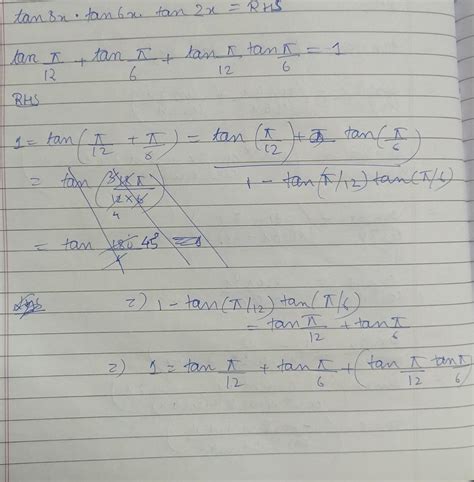 tan 8x · tan 6x · tan 2x = RHS
tan π/12 + tan π/6 + tan π/12 tan π/6 = 1
RHS
1 = tan(π/12 + π/6) = tan(π/12) + tan(π/6) / 1 - tan(π/12) tan(π/6)
= tan (3 18 π / 12 × 6) 4
= tan 180 45°
=) 1 - tan(π/12) tan(π/6)
= tan π/12 + tan π/6
=) 1 = tan π/12 + tan π/6 + (tan π/12 tan π/6)